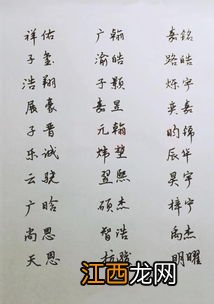 祥佑 广翰 嘉铭
子 渝皓 路皓
浩翔 子颢 烁宇
展豪 嘉昱 奕嘉
子晋 元翰 昀锦
乐诚 炜堃 辰华
云骁 翌熙 昊宇
广晗 硕杰 梓宁
尚思 智浩 禹杰
天思 明曜
江西龙网